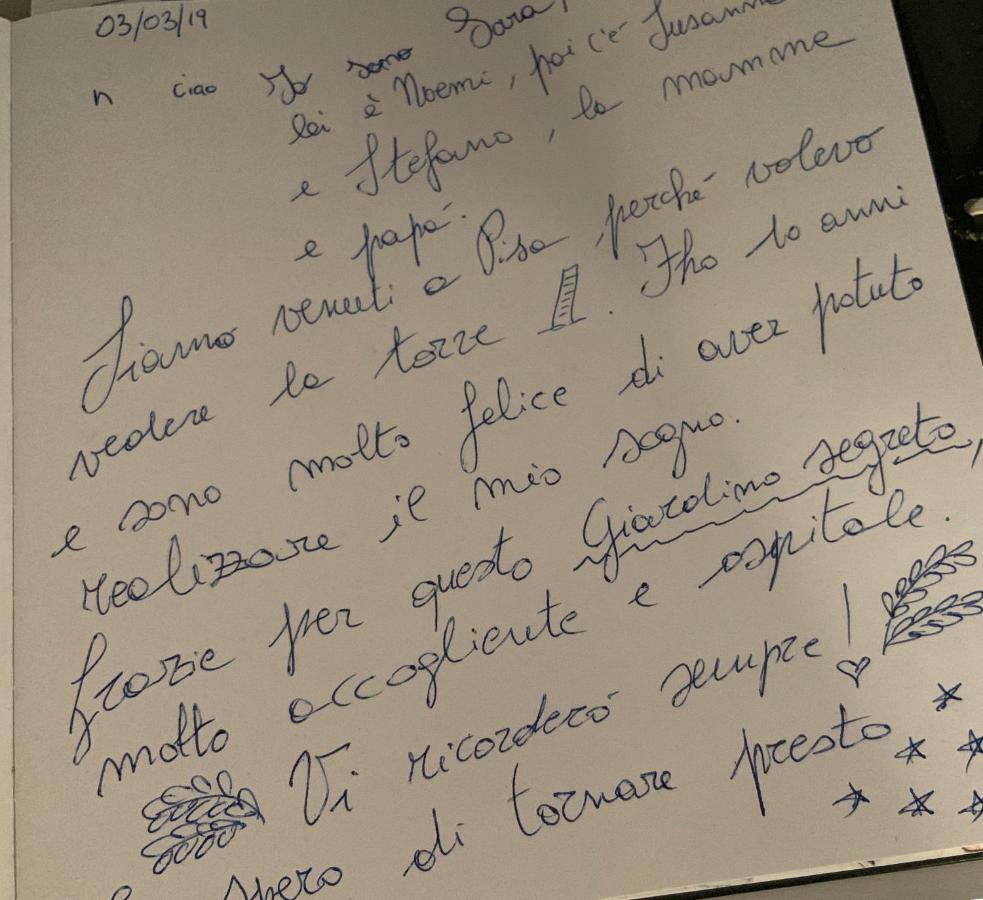 03/03/19
n ciao Io sono Sara,
lei è Noemi, poi c'è Susanna
e Stefano, la mamma
e papà.
Siamo venuti a Pisa perché volevo
vedere la torre. Iho 10 anni
e sono molto felice di aver potuto
realizzare il mio sogno.
Grazie per questo Giardino segreto,
molto accogliente e ospitale.
Vi ricorderò sempre!
e spero di tornare presto